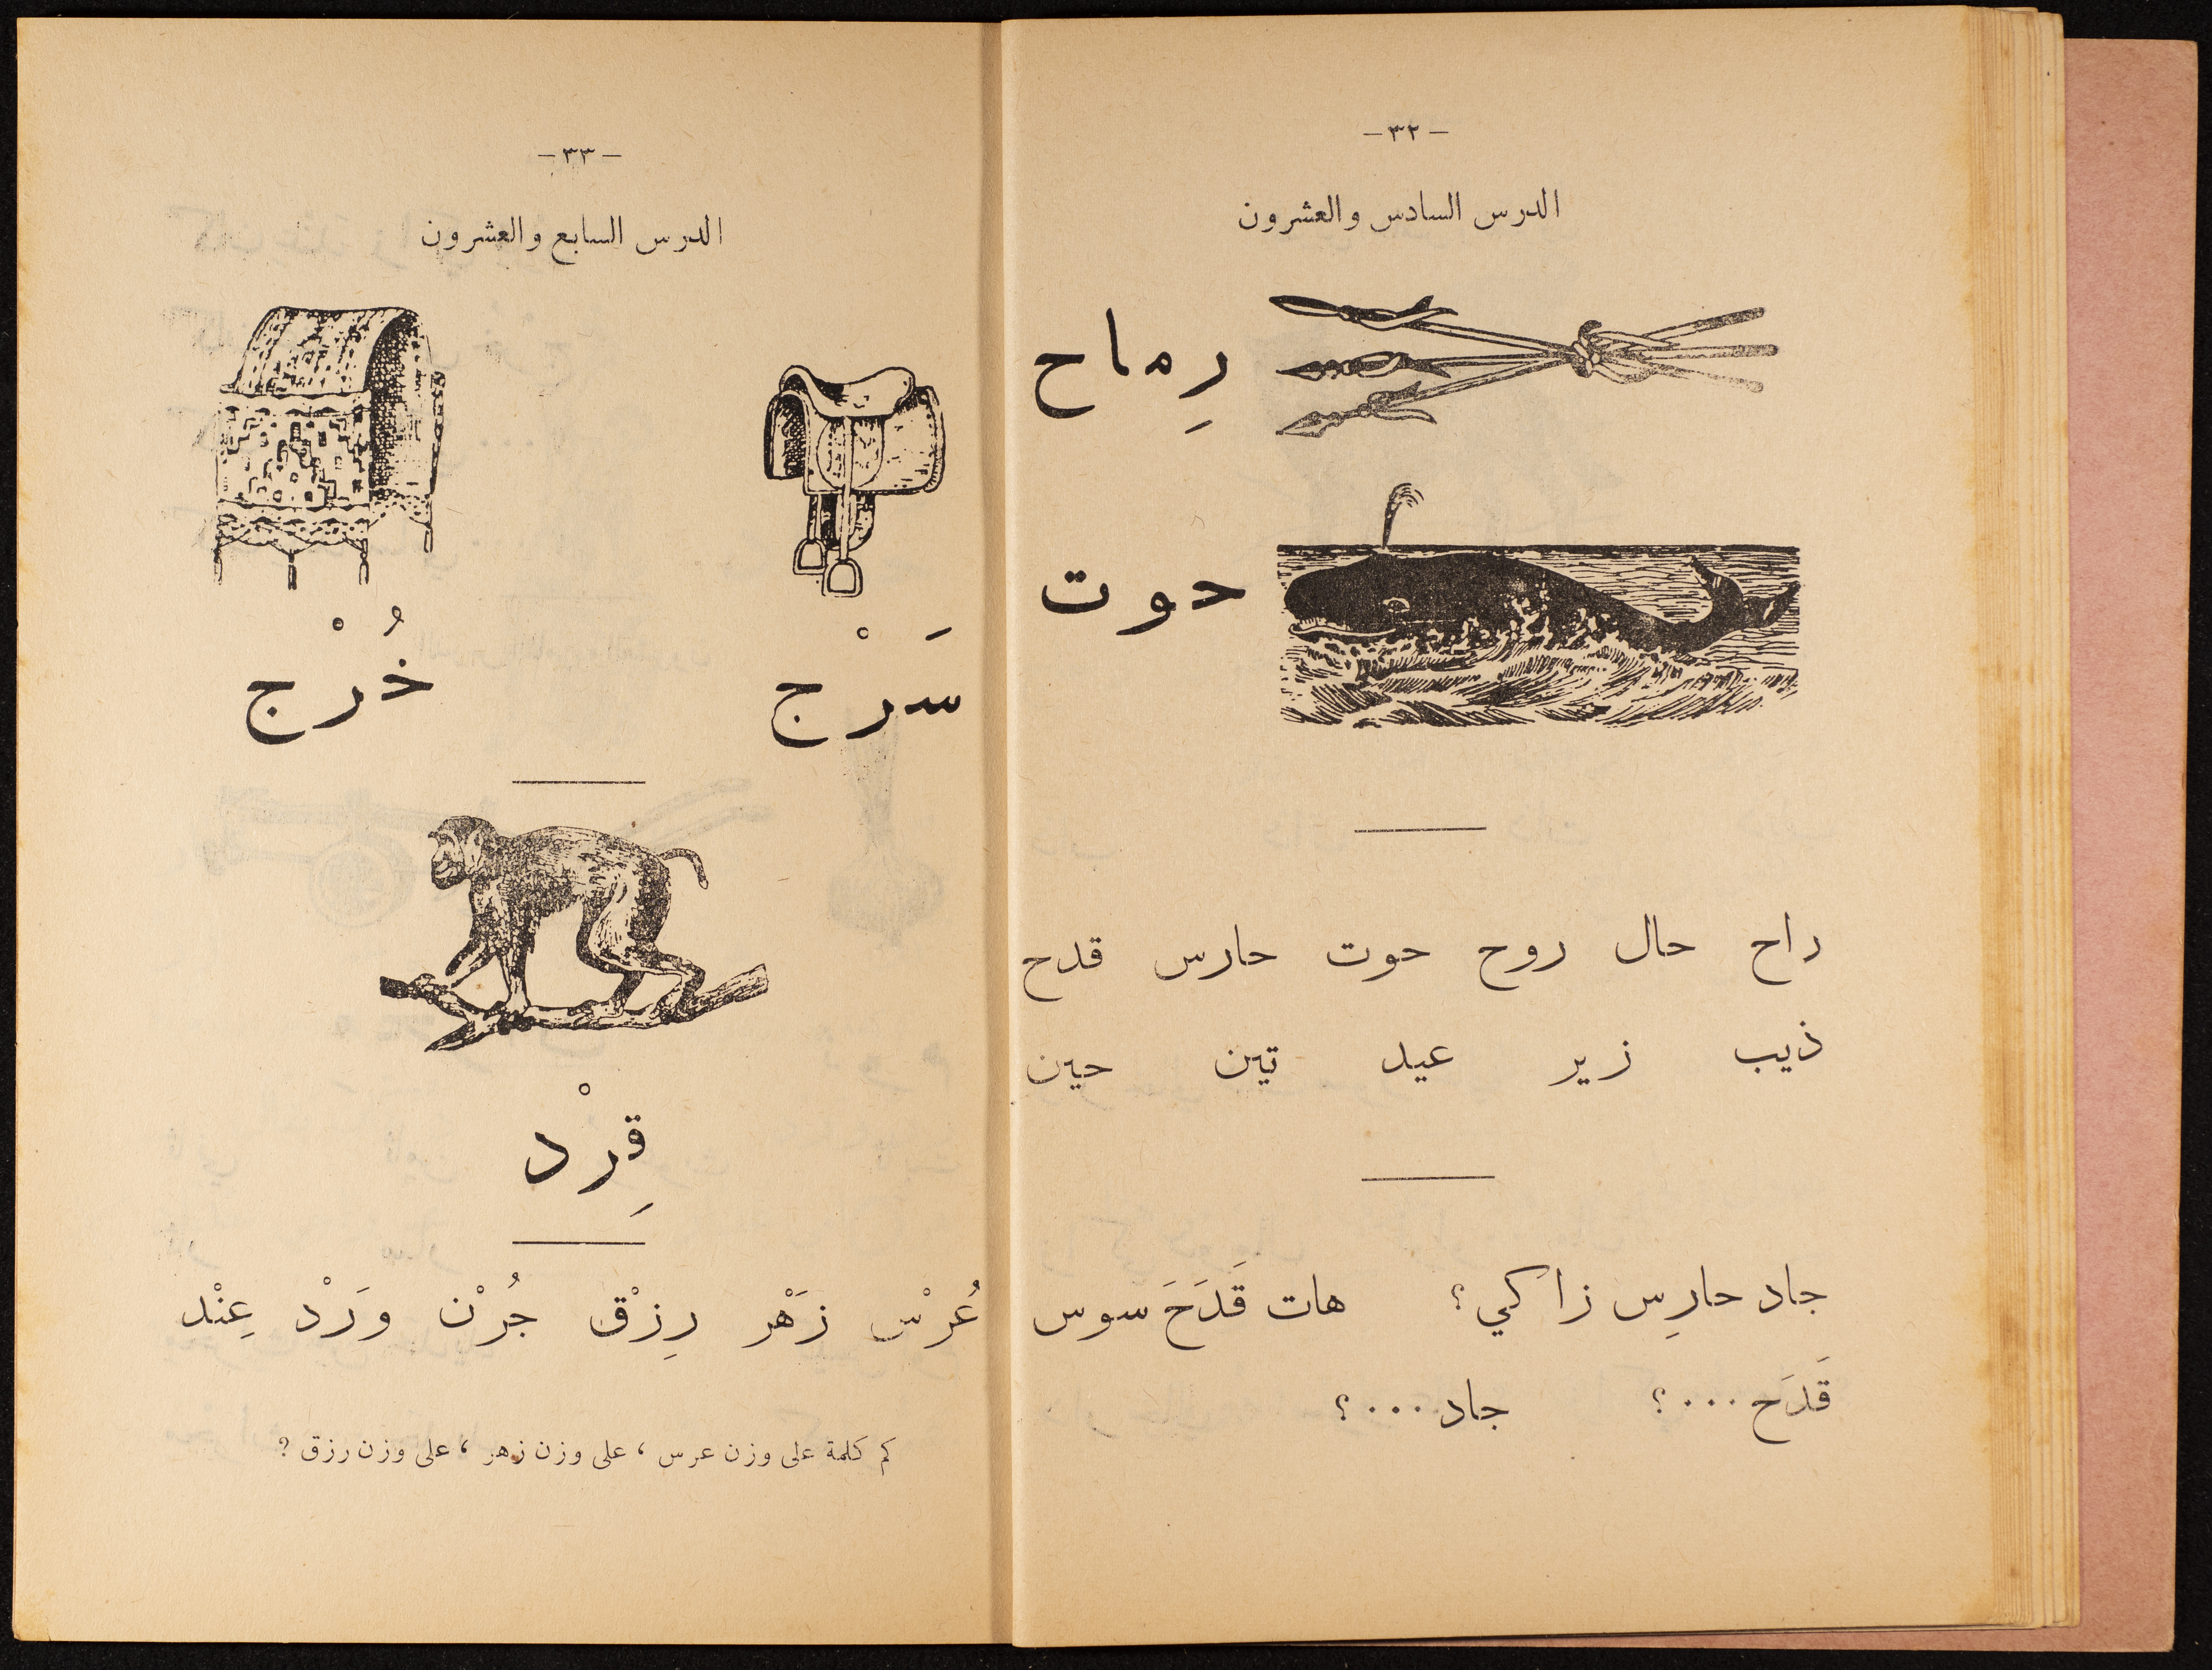 -٣٢-
الدرس السادس والعشرون
رِماح
حوت
راح حال روح حوت حارس قدح
ذيب زير عيد تين حين
جاد حارِس زاكي؟ هات قَدَحَ سوس
قَدَح ...؟ جاد ...؟
-٣٣-
الدرس السابع والعشرون
سَرْج خُرْج
قِرْد
عُرْس زَهْر رِزْق جُرْن وَرْد عِنْد
كم كلمة على وزن عرس ، على وزن زهر ، على وزن رزق ?